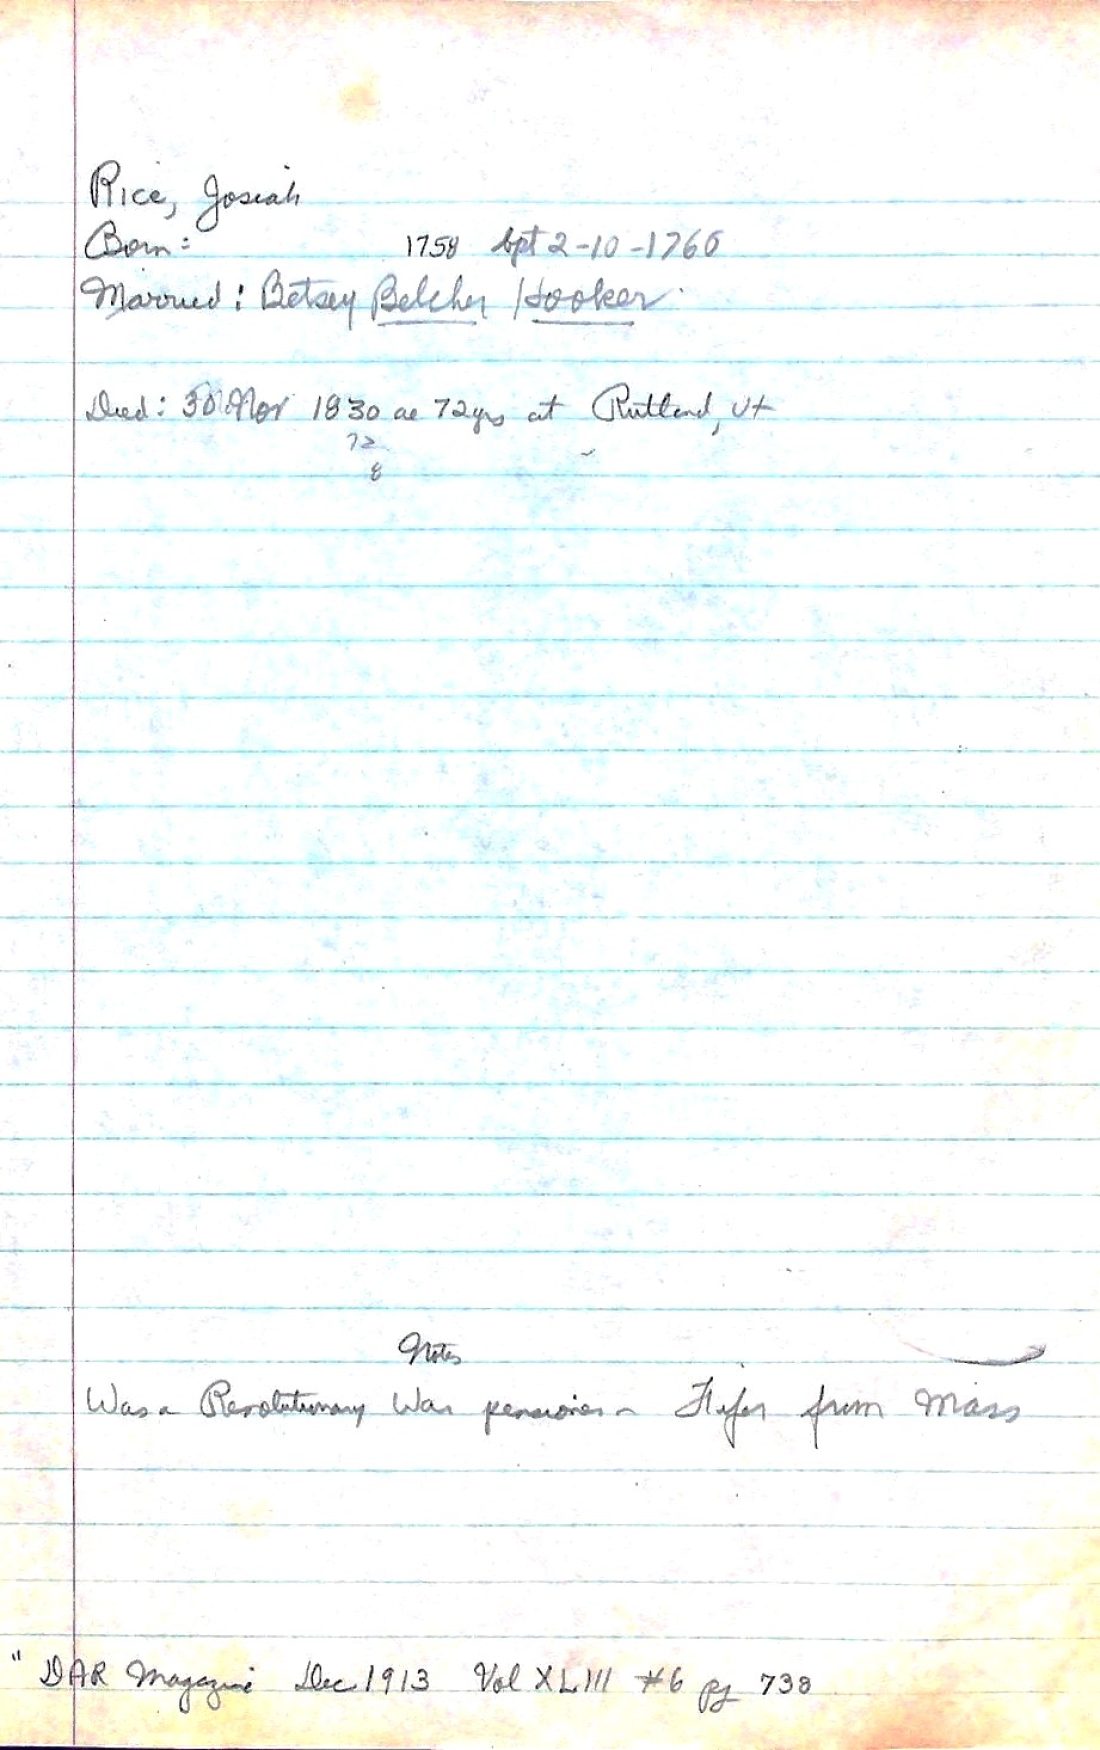 Rice, Josiah
Born: 1758 bpt 2-10-1760
Married: Betsey Belcher Hooker
Died: 30 Nov 1830 ae 72yrs at Rutland, Vt
72
8
Notes
Was a Revolutionary War pensioner - Fifer from Mass
" DAR Magazine Dec 1913 Vol XLIII #6 pg 738